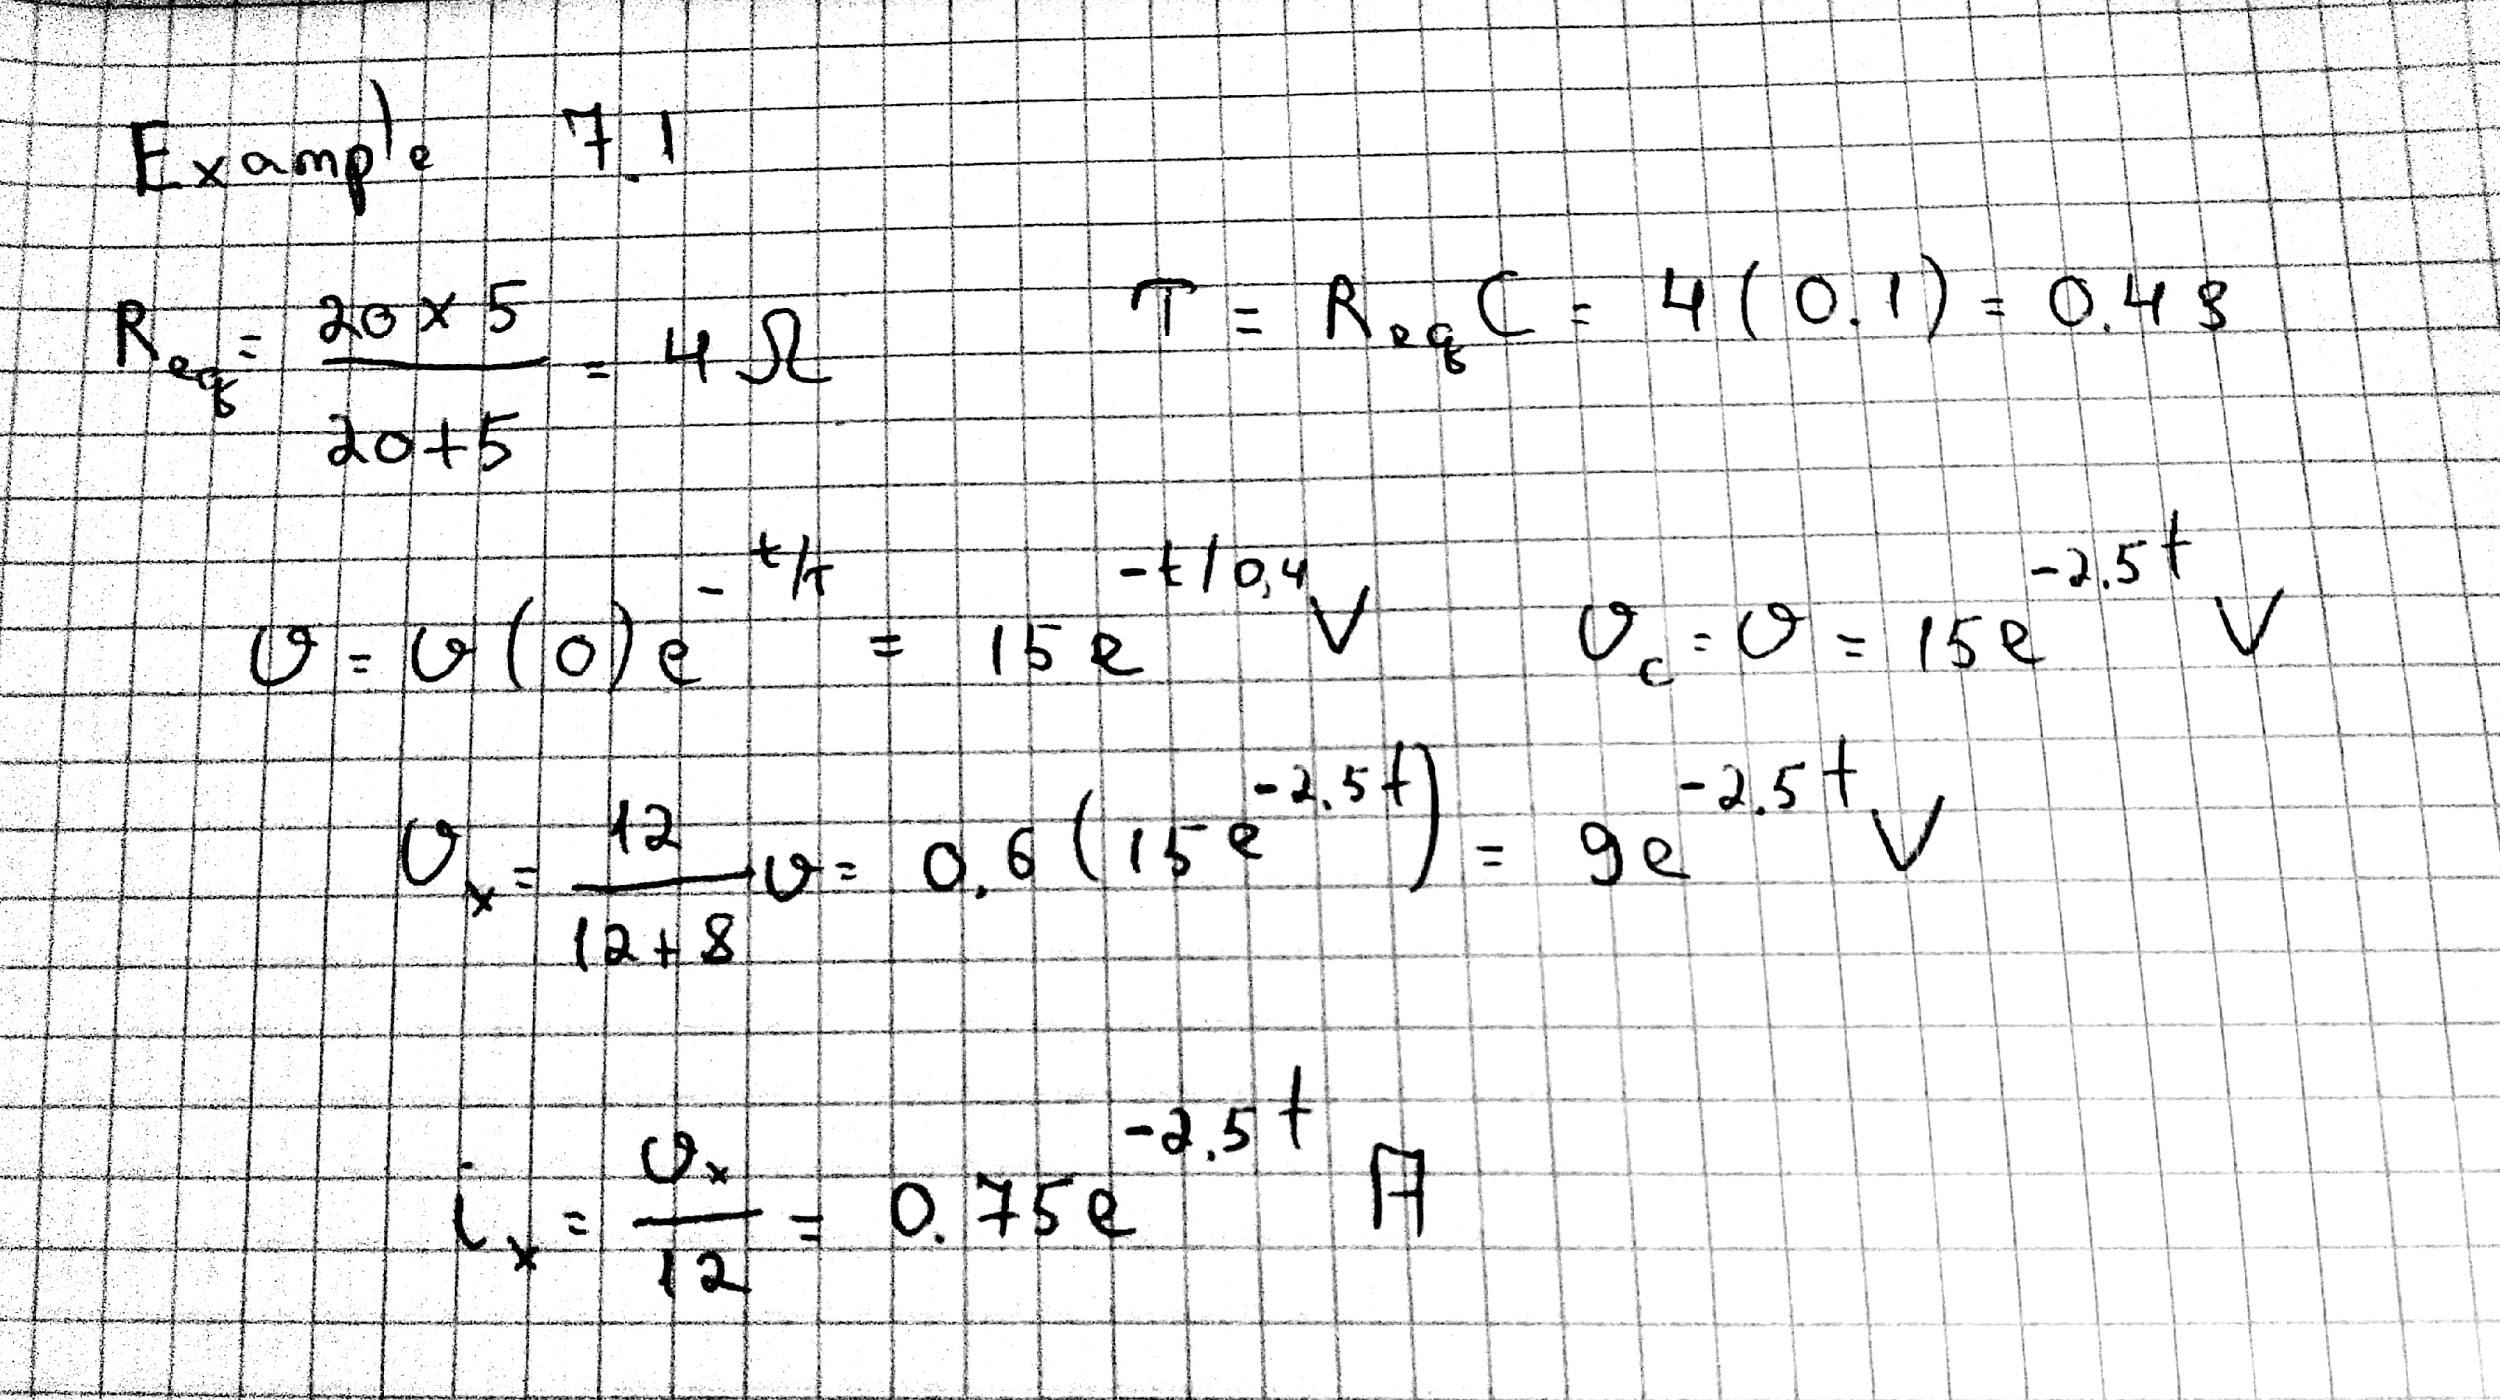 Example 7.1
R_eq = (20 × 5)/(20+5) = 4 Ω    τ = R_eq C = 4(0.1) = 0.4 s
v = v(0)e^(-t/τ) = 15e^(-t/0,4) V    v_c = v = 15e^(-2.5t) V
v_x = 12/(12+8) v = 0.6(15e^(-2.5t)) = 9e^(-2.5t) V
i_x = v_x/12 = 0.75e^(-2.5t) A